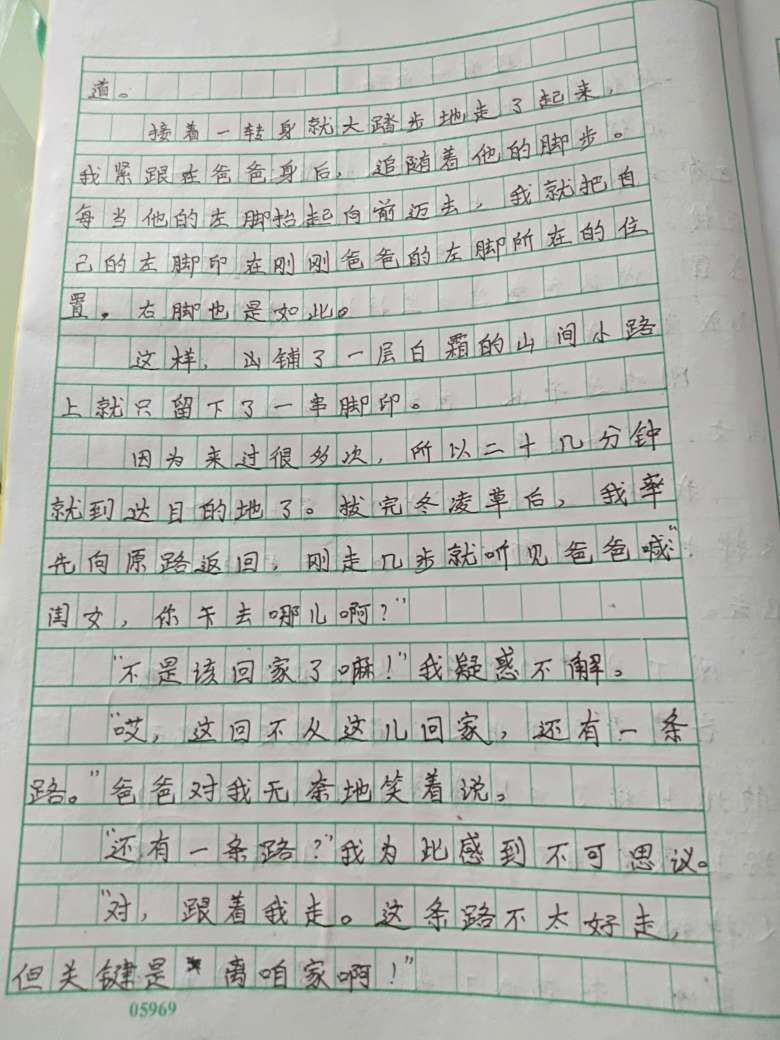 道。
接着一转身就大踏步地走了起来，
我紧跟在爸爸身后，追随着他的脚步。
每当他的左脚抬起向前迈去，我就把自
己的左脚印在刚刚爸爸的左脚所在的位
置。右脚也是如此。
这样，铺了一层白霜的山间小路
上就只留下了一串脚印。
因为来过很多次，所以二十几分钟
就到达目的地了。拔完冬凌草后，我率
先向原路返回，刚走几步就听见爸爸喊："
闺女，你去哪儿啊？"
"不是该回家了嘛！"我疑惑不解。
"哎，这回不从这儿回家，还有一条
路。"爸爸对我无奈地笑着说。
"还有一条路？"我为此感到不可思议。
"对，跟着我走。这条路不太好走，
但关键是离咱家啊！"
05969